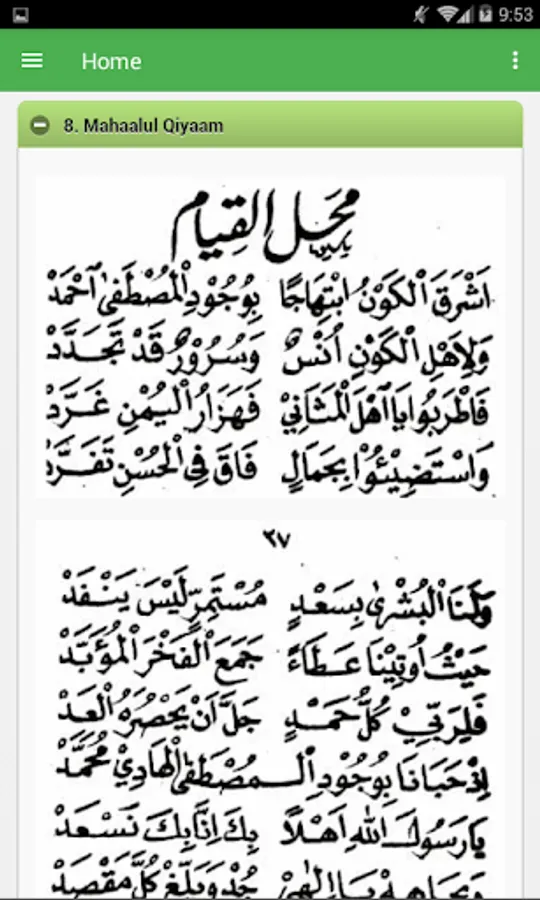 9:53
Home
8. Mahaalul Qiyaam
مَحَلُ القِيَام
اَشْرَقَ الْكَوْنُ ابْتِهَاجًا بِوُجُوْدِ الْمُصْطَفٰى اَحْمَدْ
وَلِاَهْلِ الْكَوْنِ اُنْسٌ وَسُرُوْرٌ قَدْ تَجَدَّدْ
فَاطْرَبُوْا يَا اَهْلَ الْمَثَانِيْ فَهَزَارُ الْيُمْنِ غَرَّدْ
وَاسْتَضِيْئُوْا بِجَمَالٍ فَاقَ فِي الْحُسْنِ تَفَرَّدْ
٣٧
وَلَنَا الْبُشْرٰى بِسَعْدٍ مُسْتَمِرٍّ لَيْسَ يَنْفَدْ
حَيْثُ اُوْتِيْنَا عَطَاءً جَمَعَ الْفَخْرَ الْمُؤَبَّدْ
فَلِرَبِّيْ كُلُّ حَمْدٍ جَلَّ اَنْ يَحْصُرَهُ الْعَدّ
اِذْ حَبَانَا بِوُجُوْدِ الْمُصْطَفٰى الْهَادِيْ مُحَمَّدْ
يَارَسُوْلَ اللهِ اَهْلًا بِكَ اِنَّا بِكَ نَسْعَدْ
وَبِجَاهِهْ يَا اِلٰهِيْ جُدْ وَبَلِّغْ كُلَّ مَقْصَدْ